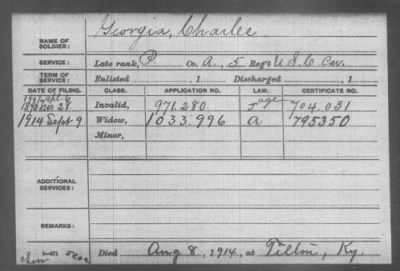 NAME OF SOLDIER: Georgia, Charles
SERVICE: Late rank, P Co. A, 5 Reg't U S C Cav.
TERM OF SERVICE: Enlisted , 1 Discharged , 1
DATE OF FILING. CLASS. APPLICATION NO. LAW. CERTIFICATE NO.
1890 Nov. 29 Invalid, 971.280 J age 704.031
1914 Sept 9 Widow, 1033.996 a 795350
Minor,
ADDITIONAL SERVICES:
REMARKS:
Died Aug 8, 1914, at Tilton, Ky.